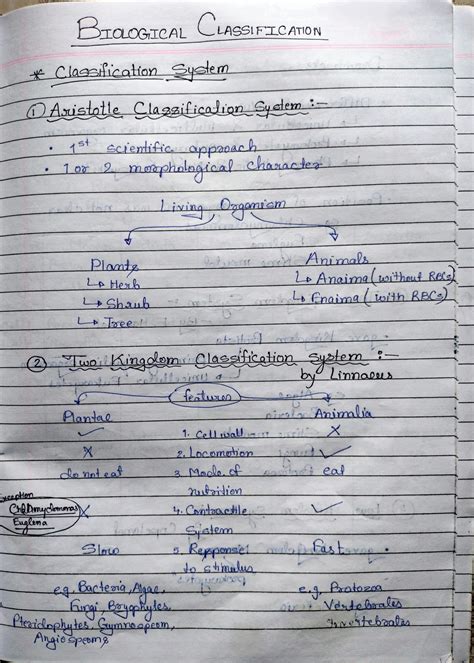 BIOLOGICAL CLASSIFICATION
* Classification System
① Aristotle Classification System :-
• 1st scientific approach
• 1 or 2 morphological character
Living Organism
Plants Animals
↳ Herb ↳ Anaima (without RBCs)
↳ Shrub ↳ Enaima (with RBCs)
↳ Tree
② Two Kingdom Classification System :-
by Linnaeus
features
Plantae Animalia
✓ 1. Cell wall X
X 2. Locomotion ✓
do not eat 3. Mode of eat
nutrition
Exception
Chlamydomonas X 4. Contractile ✓
Euglena
System
Slow 5. Response Fast
to stimulus
e.g, Bacteria, Algae, e.g, Protozoa
Fungi, Bryophytes, Vertebrates
Pteridophytes, Gymnosperm, Invertebrates
Angiosperms